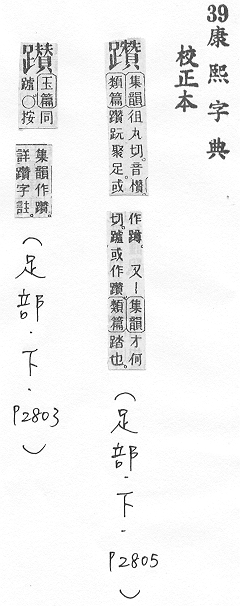 39康熙字典
校正本
躦
集韻徂丸切。音欑
類篇躦聚足。或
作。又一集韻才何
切。或作躦類篇踏也。
(足部.下.
P2805)
躦
玉篇同
○按
集韻作躦。
詳躦字註。
(足部.下.
P2803)